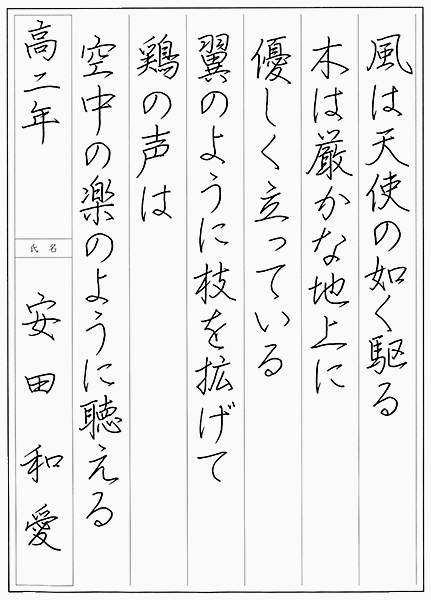 風は天使の如く駆る
木は厳かな地上に
優しく立っている
翼のように枝を拡げて
鶏の声は
空中の楽のように聴える
高二年
氏名
安田和愛